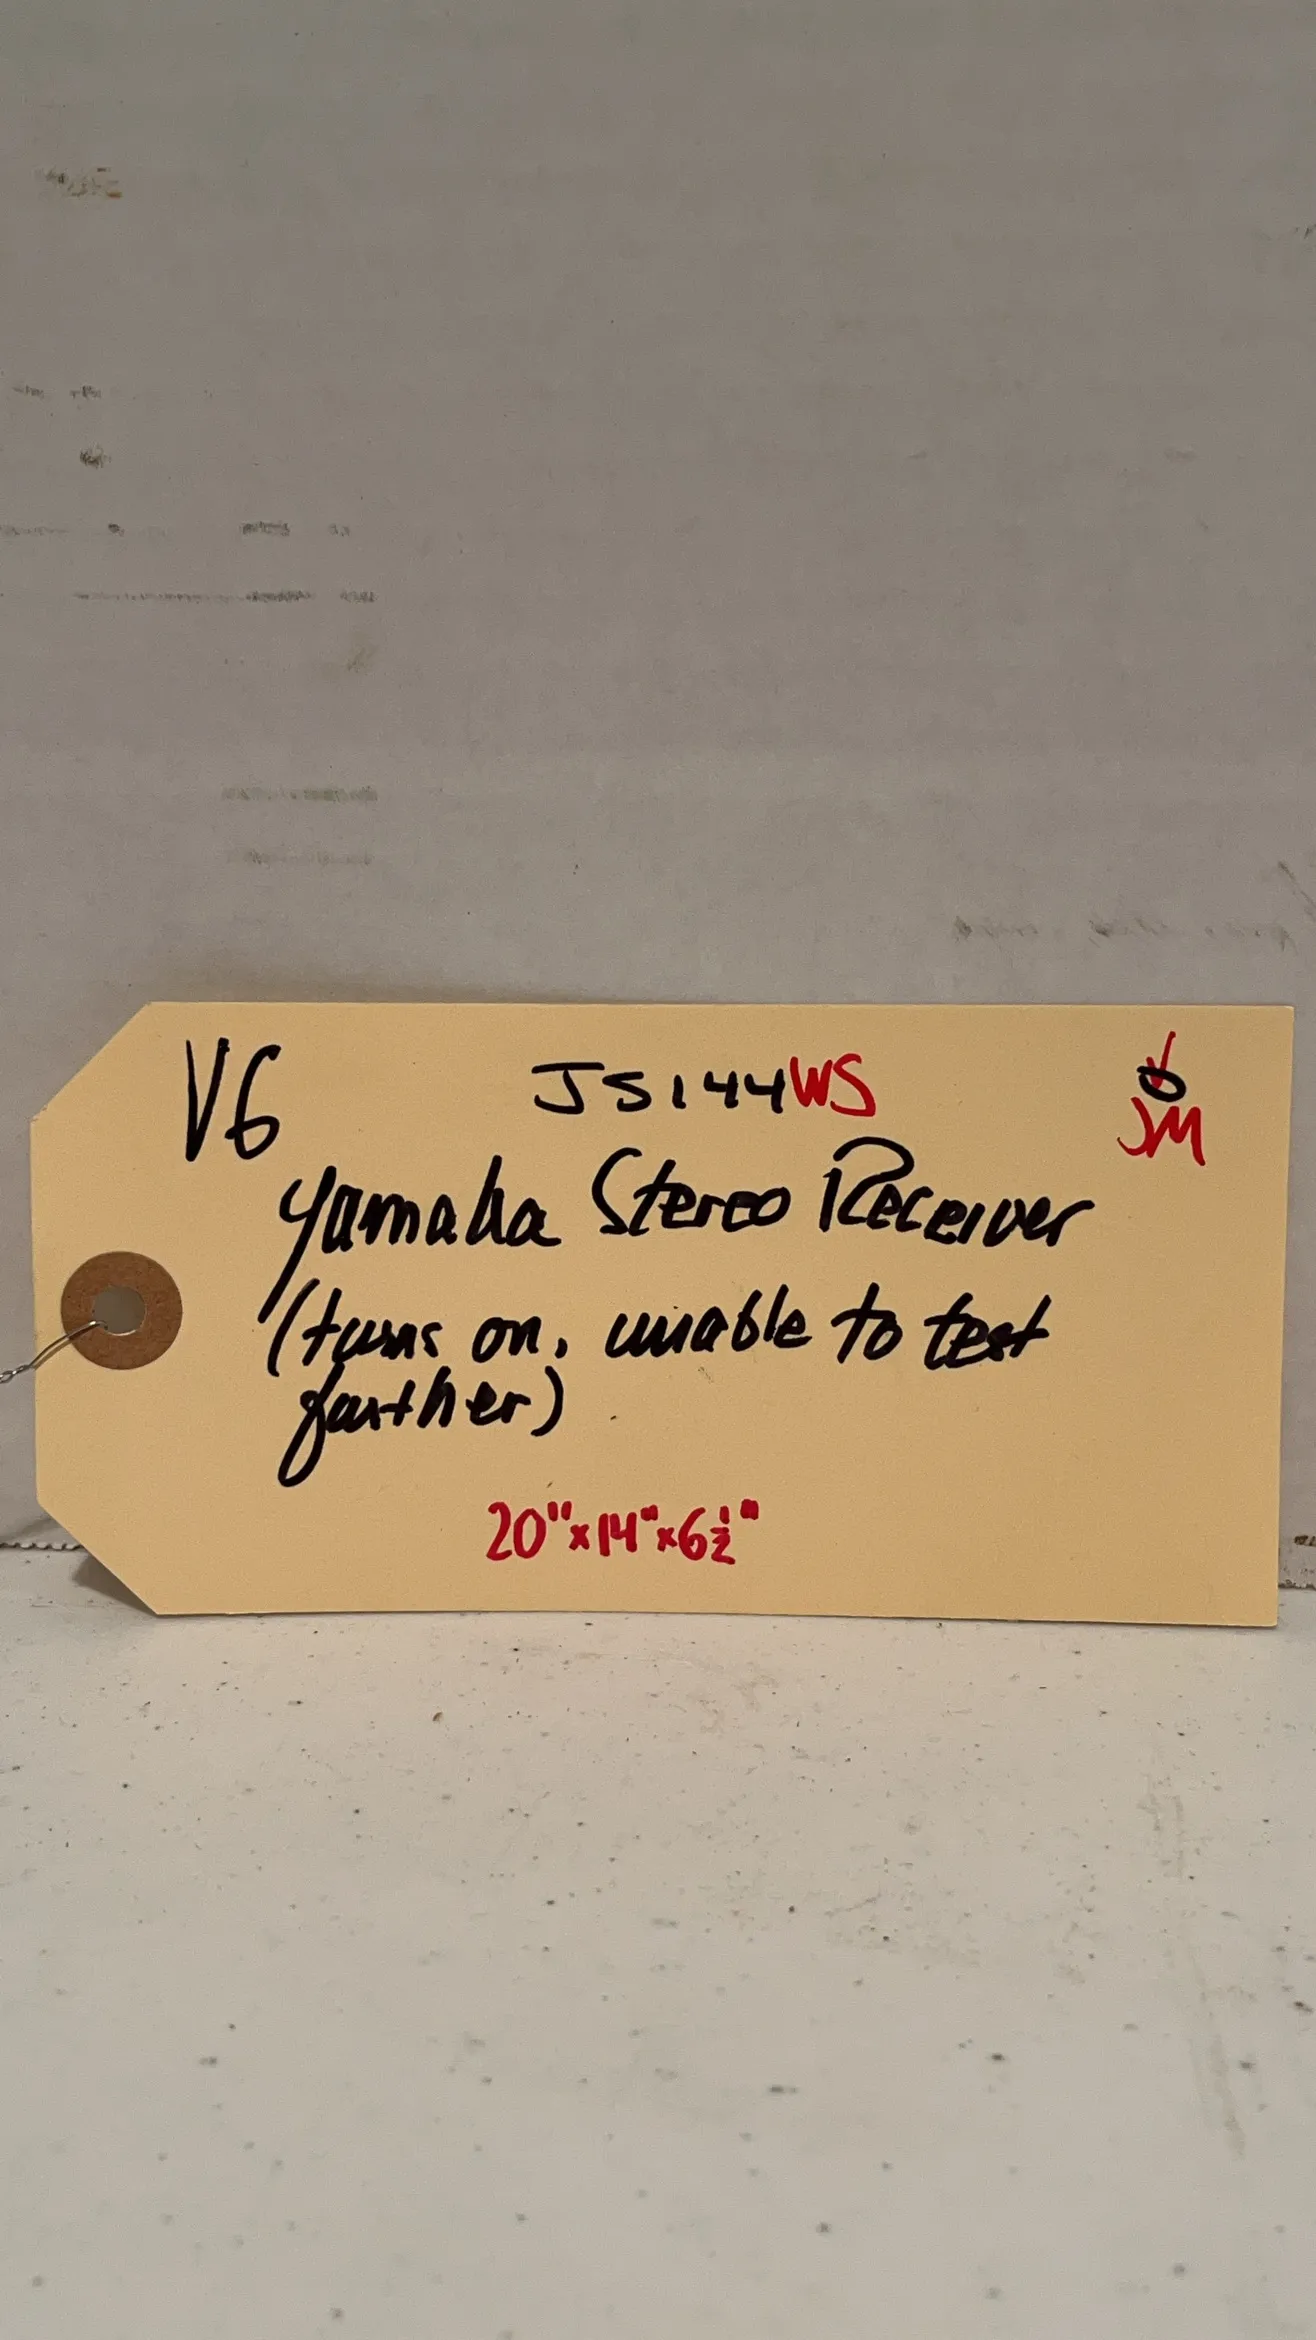 V6 JS144WS JM
Yamaha Stereo Receiver
(turns on, unable to test
farther)
20"x14"x6½"